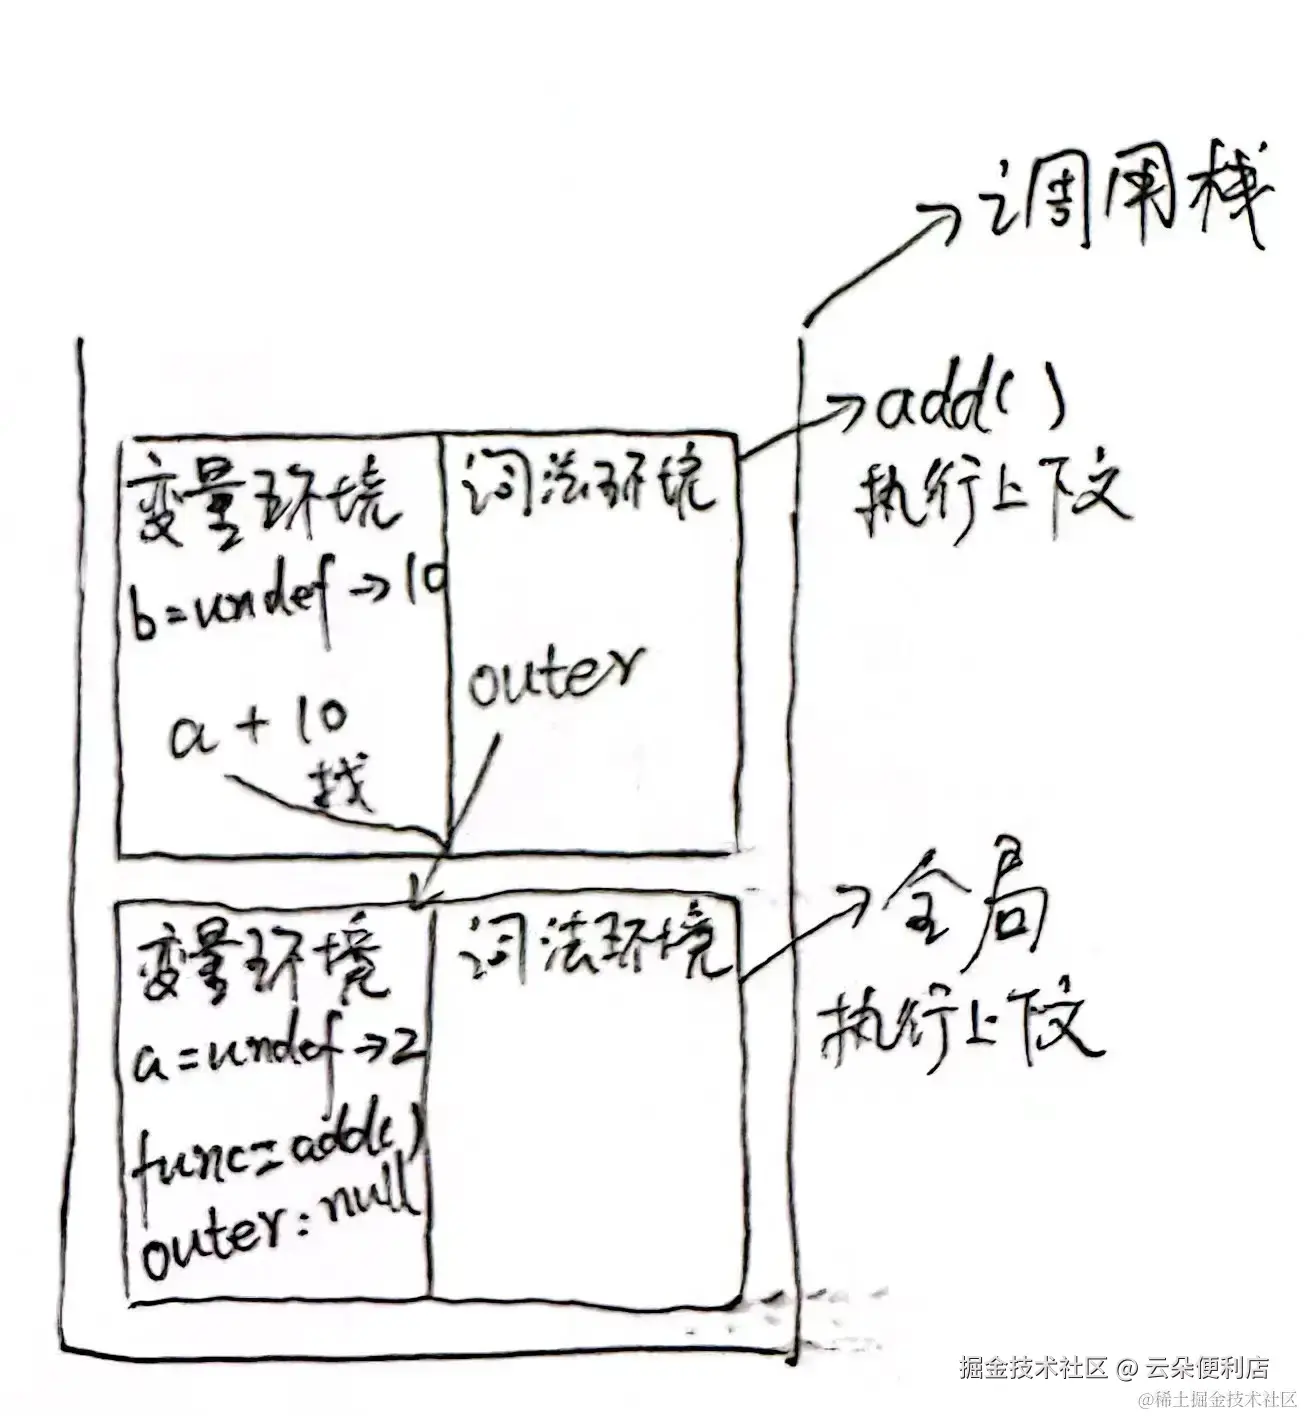 调用栈
add()
执行上下文
变量环境
词法环境
b=undef→10
outer
a+10
找
全局
执行上下文
变量环境
词法环境
a=undef→2
func=add()
outer:null
掘金技术社区 @ 云朵便利店
@稀土掘金技术社区